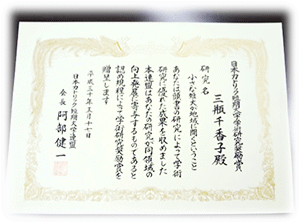 日本カトリック短期大学学術研究奨励賞
三瓶千香子殿
研究名
小さな短大が地域に開くということ
あなたは頭書の研究によって学術
研究に優れた成果を収めました
本連盟はあなたの研究が同領域の
向上発展に寄与するものであると
認め規程によって学術研究奨励賞を
贈呈します
平成三十年 月十七日
日本カトリック短期大学連盟
会長 阿部健一